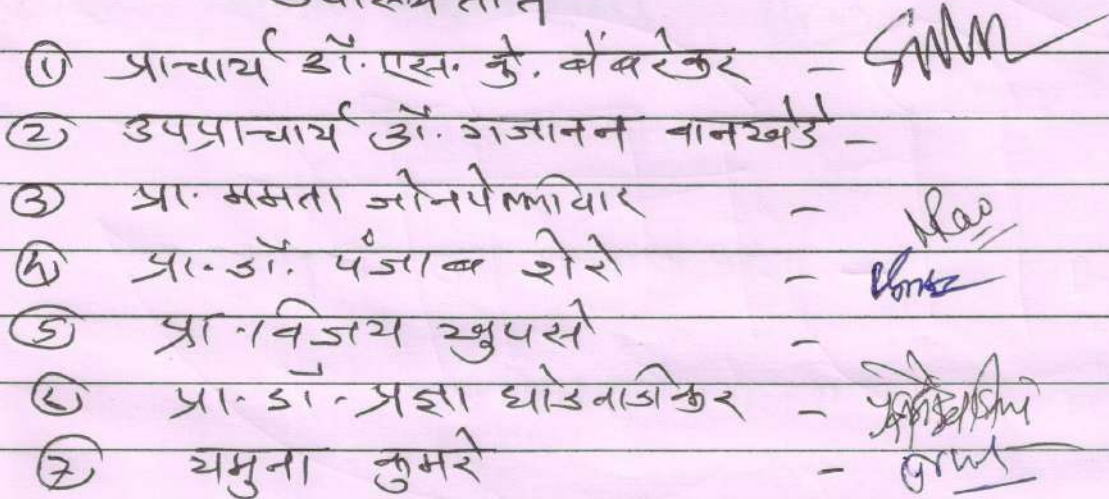 ① प्राचार्य डॉ. एस. के. बेंबरेकर -
② उपप्राचार्य डॉ. गजानन वानखेडे -
③ प्रा. ममता जोनपेल्लीवार -
④ प्रा. डॉ. पंजाब शेरे -
⑤ प्रा. विजय खुपसे -
⑥ प्रा. डॉ. प्रज्ञा घोडवाडीकर -
⑦ यमुना कुमरे -